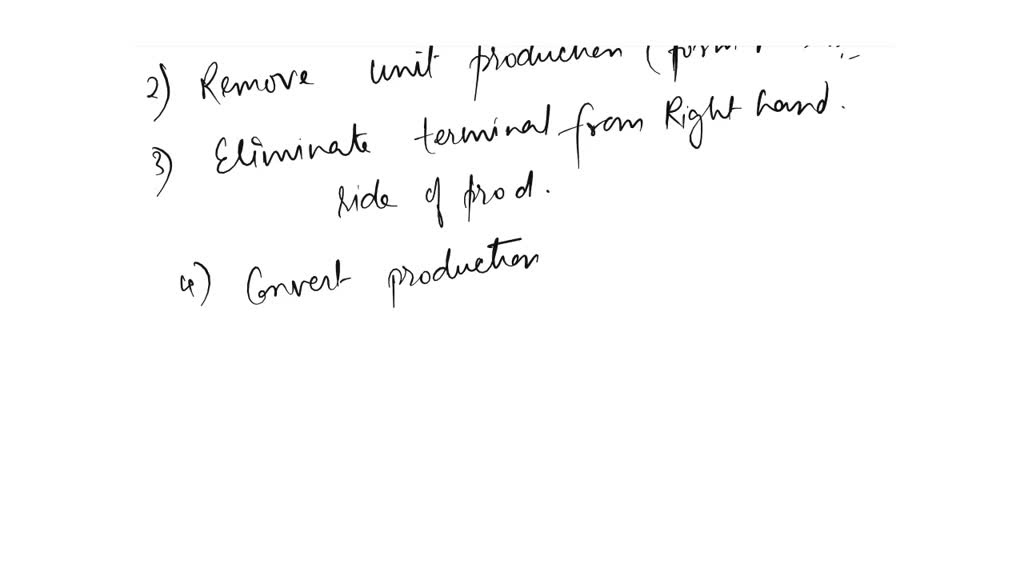 2) Remove unit production (form
3) Eliminate terminal from Right hand.
side of prod.
4) Convert production